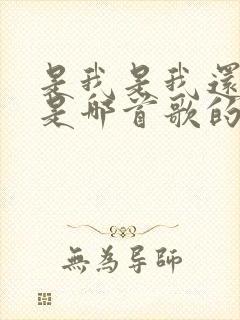 是我是我還
是那首歌的
無為导師